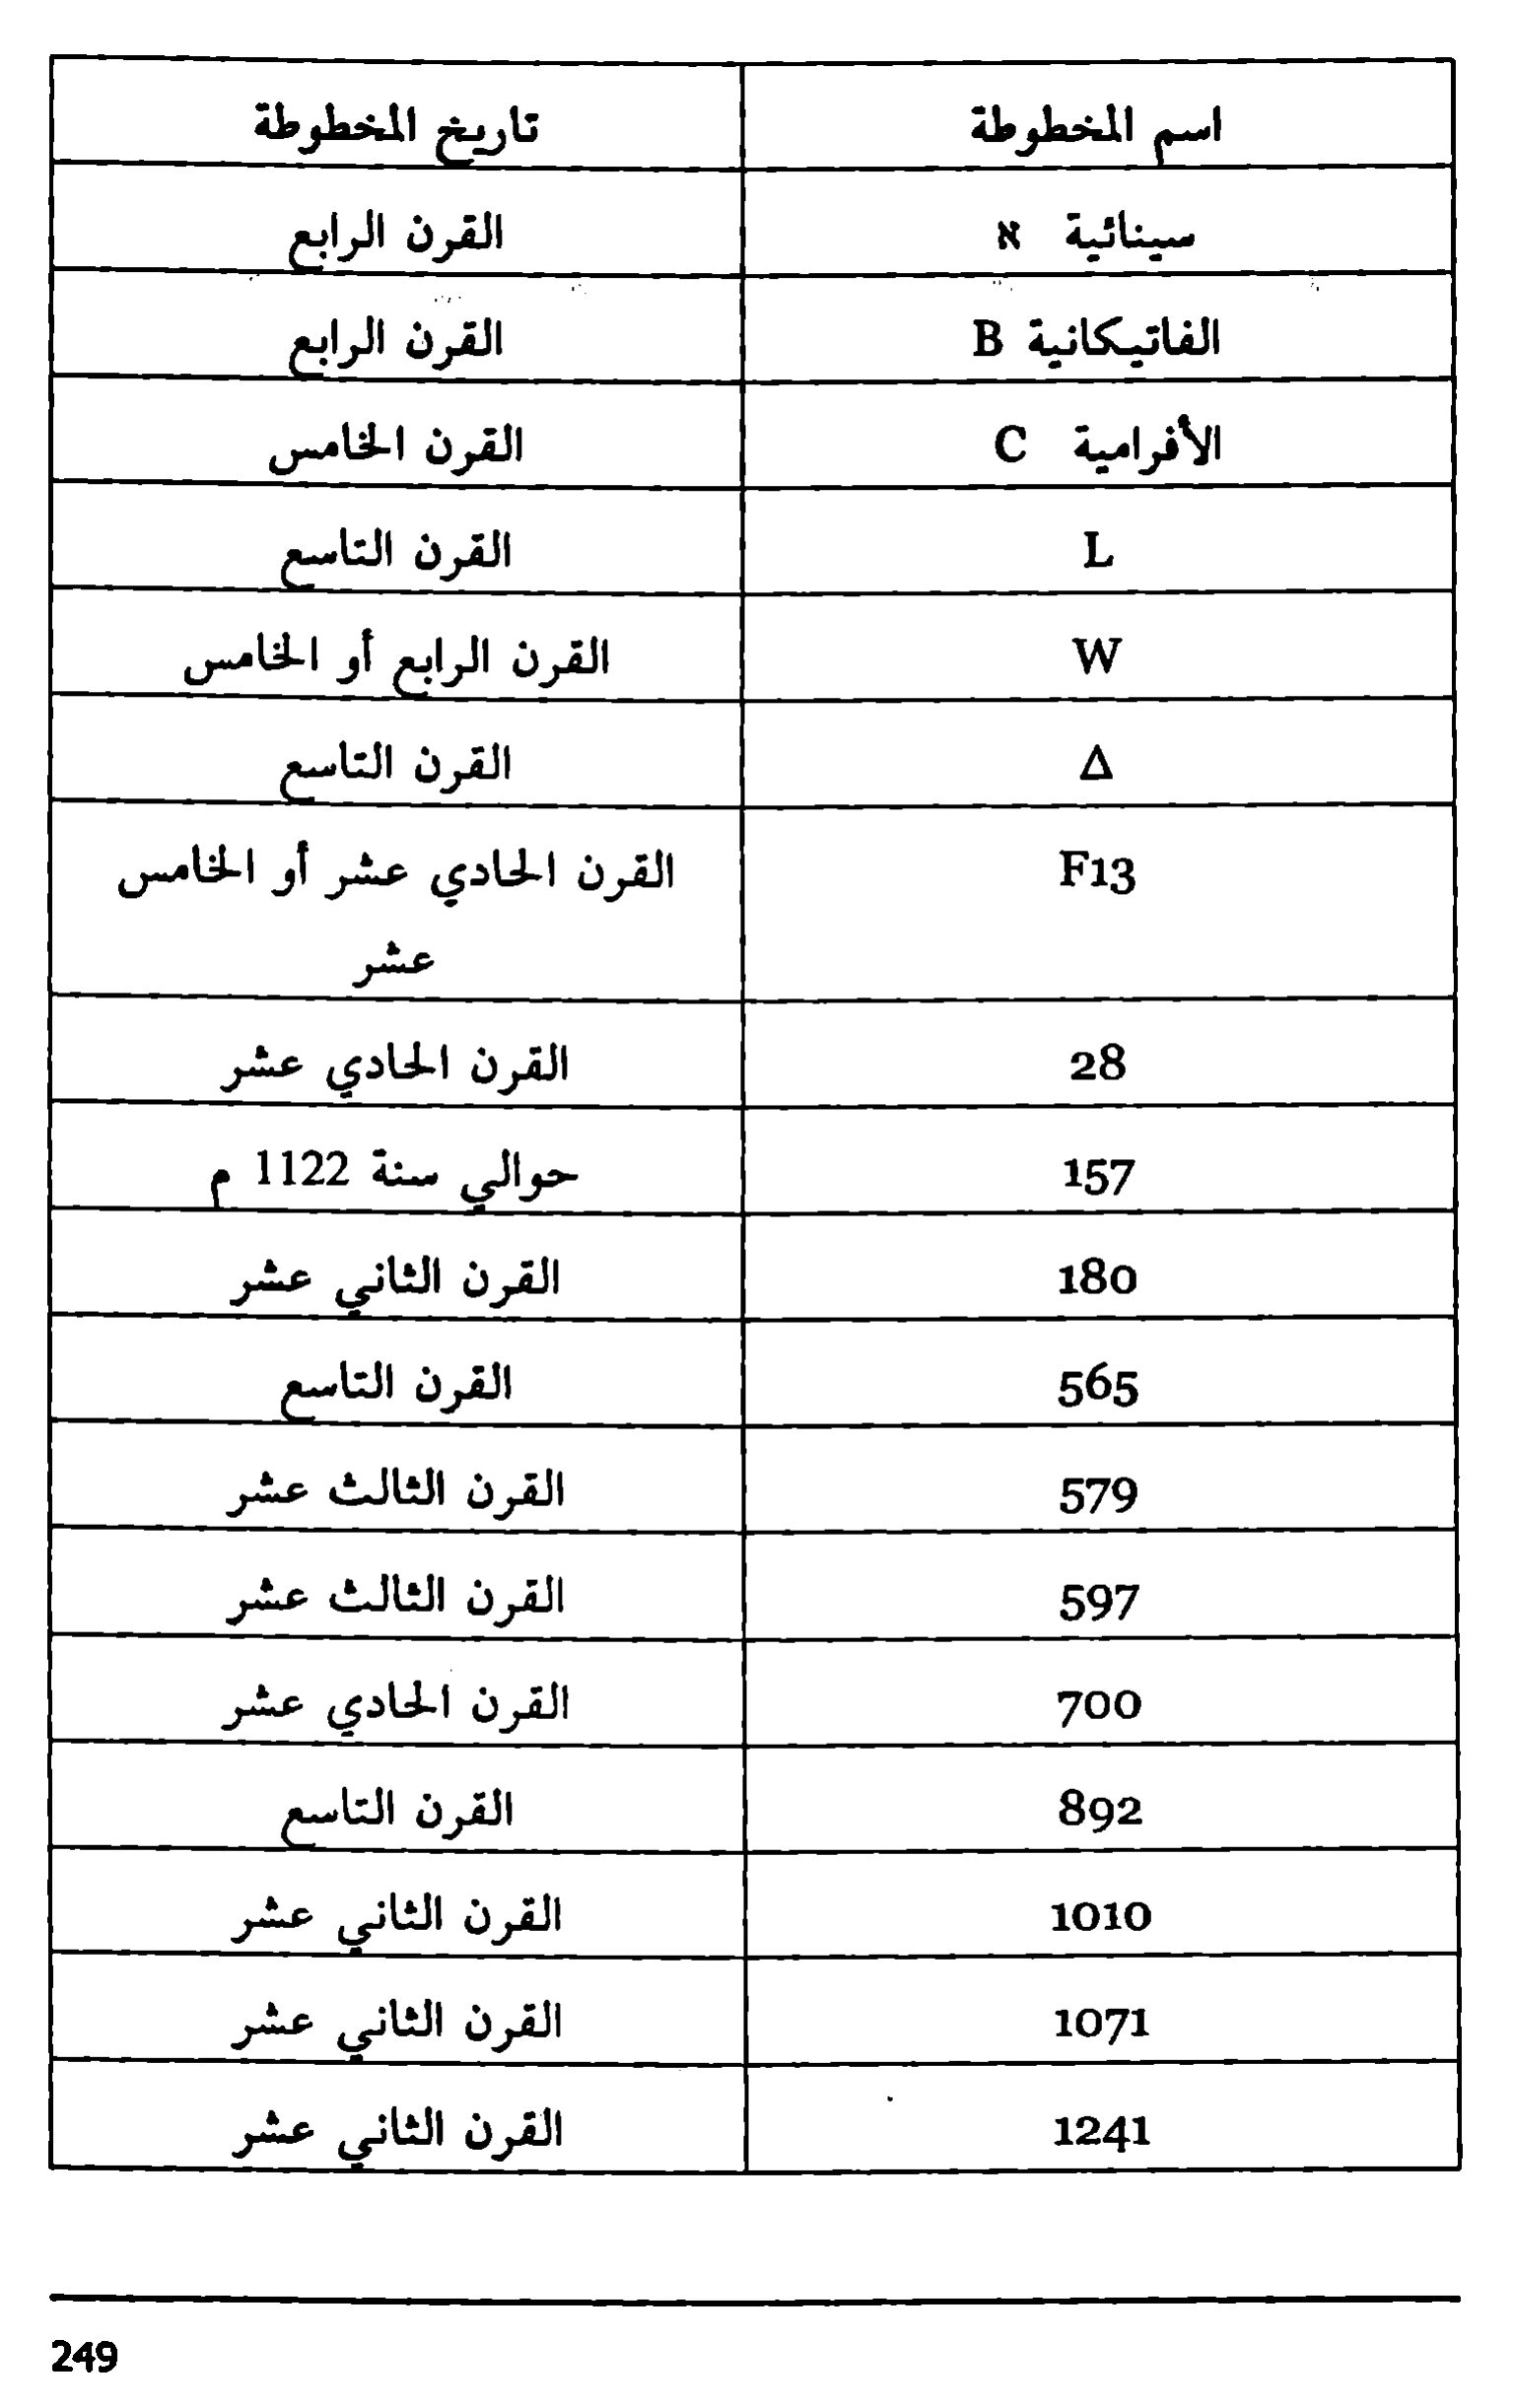 اسم المخطوطة تاريخ المخطوطة
سينائية א القرن الرابع
الفاتيكانية B القرن الرابع
الأفرامية C القرن الخامس
L القرن التاسع
W القرن الرابع أو الخامس
Δ القرن التاسع
F13 القرن الحادي عشر أو الخامس
عشر
28 القرن الحادي عشر
157 حوالي سنة 1122 م
180 القرن الثاني عشر
565 القرن التاسع
579 القرن الثالث عشر
597 القرن الثالث عشر
700 القرن الحادي عشر
892 القرن التاسع
1010 القرن الثاني عشر
1071 القرن الثاني عشر
1241 القرن الثاني عشر
249